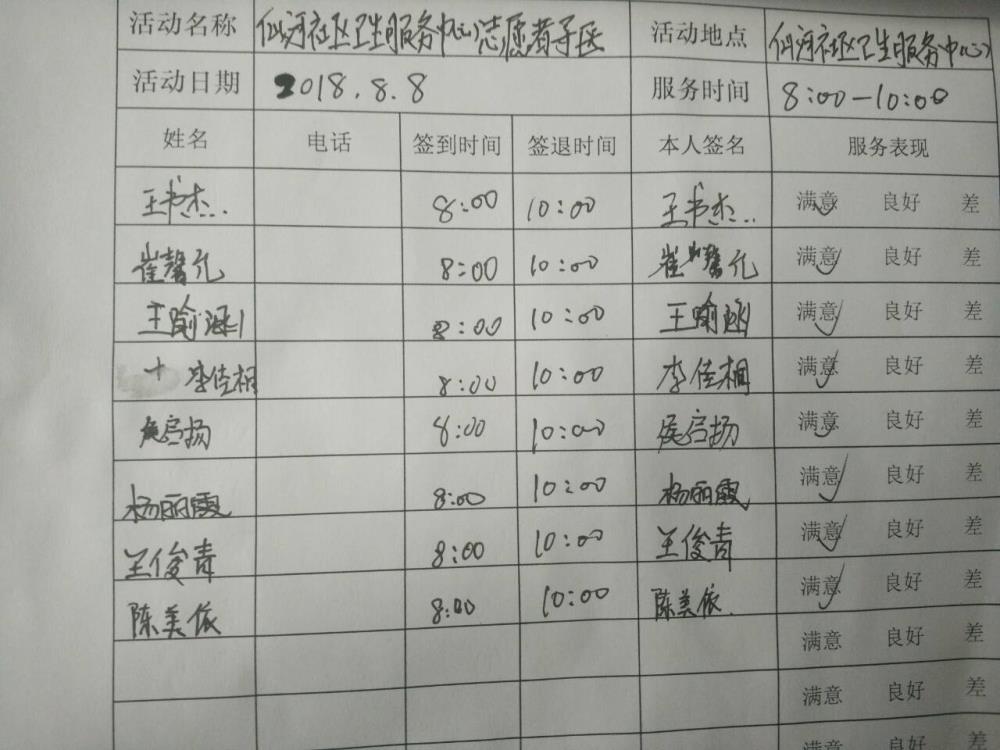 活动名称 仙河社区卫生服务中心志愿者导医 活动地点 仙河社区卫生服务中心
活动日期 2018.8.8 服务时间 8:00-10:00
姓名 电话 签到时间 签退时间 本人签名 服务表现
王书杰.. 8:00 10:00 王书杰.. 满意 良好 差
崔馨允 8:00 10:00 崔馨允 满意 良好 差
王喻涵 8:00 10:00 王喻涵 满意 良好 差
李佳桐 8:00 10:00 李佳桐 满意 良好 差
侯启扬 8:00 10:00 侯启扬 满意 良好 差
杨丽霞 8:00 10:00 杨丽霞 满意 良好 差
王俊青 8:00 10:00 王俊青 满意 良好 差
陈美依 8:00 10:00 陈美依. 满意 良好 差
满意 良好 差
满意 良好 差
满意 良好 差